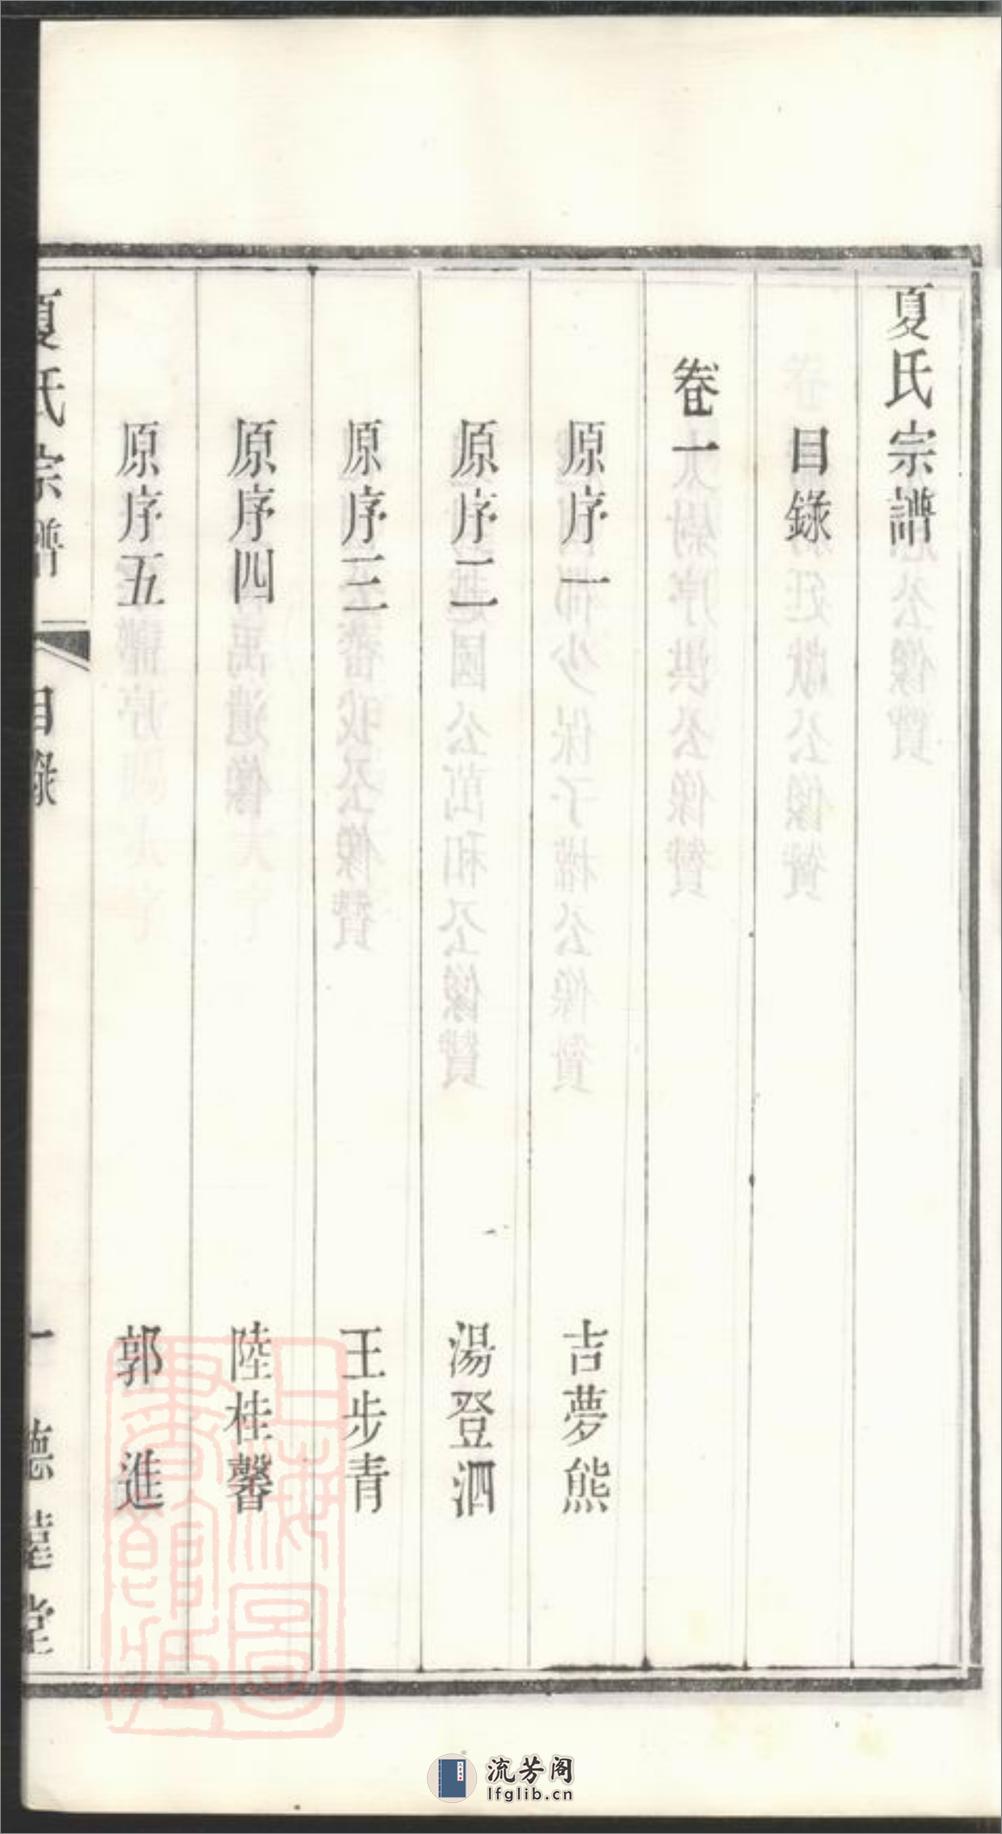 夏氏宗譜
目錄
卷一
原序一 吉夢熊
原序二 湯登泗
原序三 王步青
原序四 陸桂馨
原序五 郭進
夏氏宗譜 目錄 一 德
堂
上海圖書館藏
流芳阁
lfglib.cn